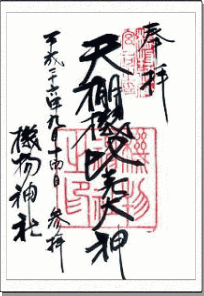 奉拝
天棚機比売大神
機物神社之印
平成二十六年九月十四日 参拝
機物神社